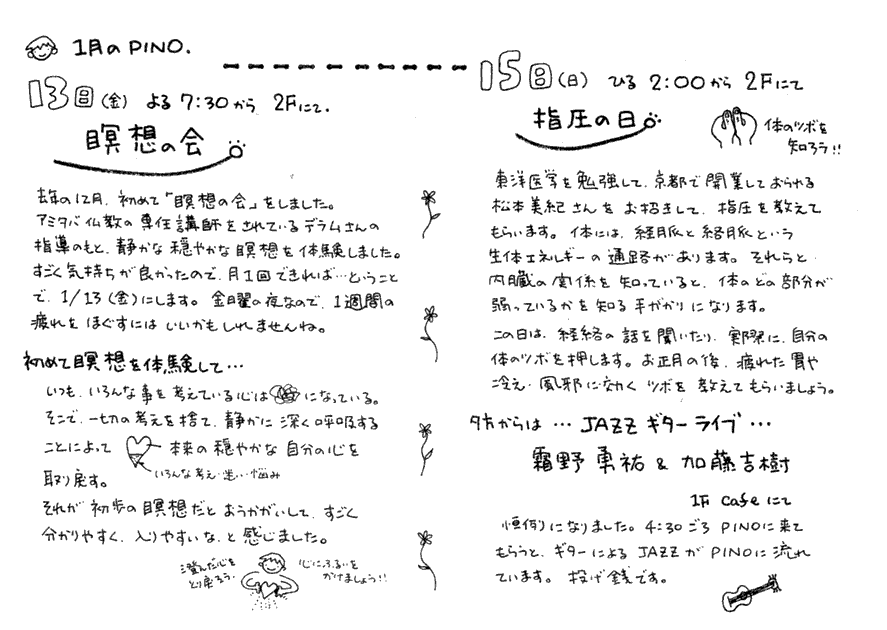 1月のPINO.
13日(金) よる7:30から 2Fにて.
瞑想の会
去年の12月、初めて「瞑想の会」をしました。
アミタバ仏教の専任講師をされているデラムさんの
指導のもと、静かな穏やかな瞑想を体験しました。
すごく気持ちが良かったので、月1回できれば…ということ
で、1/13(金)にします。金曜の夜なので、1週間の
疲れをほぐすにはいいかもしれませんね。
初めて瞑想を体験して…
いつも、いろんな事を考えている心は になっている。
そこで、一切の考えを捨て、静かに深く呼吸する
ことによって 本来の穏やかな自分の心を
いろんな考え・迷い・悩み
取り戻す。
それが初歩の瞑想だとおうかがいして、すごく
分かりやすく、入りやすいな、と感じました。
澄んだ心を
とり戻ろう。
心にふるいを
かけましょう!!
15日(日) ひる2:00から 2Fにて
指圧の日
体のツボを
知ろう!!
東洋医学を勉強して、京都で開業しておられる
松本美紀さんをお招きして、指圧を教えて
もらいます。体には、経脈と絡脈という
生体エネルギーの通路があります。それらと
内臓の関係を知っていると、体のどの部分が
弱っているかを知る手がかりになります。
この日は、経絡の話を聞いたり、実際に、自分の
体のツボを押します。お正月の後、疲れた胃や
冷え・風邪に効くツボを教えてもらいましょう。
夕方からは…JAZZギターライブ…
霜野勇祐&加藤吉樹
1F cafeにて
恒例になりました。4:30ごろPINOに来て
もらうと、ギターによるJAZZがPINOに流れ
ています。投げ銭です。